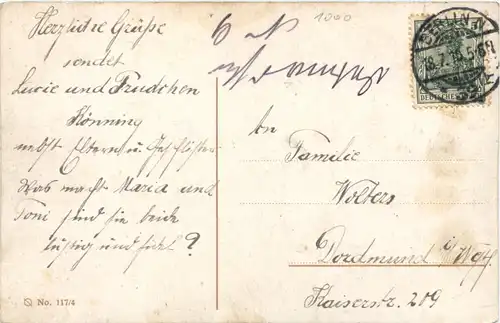 Herzliche Grüße
sendet
Lucie und Trudchen
Könning
nebst Eltern u. Geschwister
Was macht Maria und
Toni sind sie beide
lustig und fidel?
No. 117/4
1000
BERLIN
18.7.
DEUTSCHES
An
Familie
Wolters
Dordmund i/Wstf.
Kaiserstr. 209